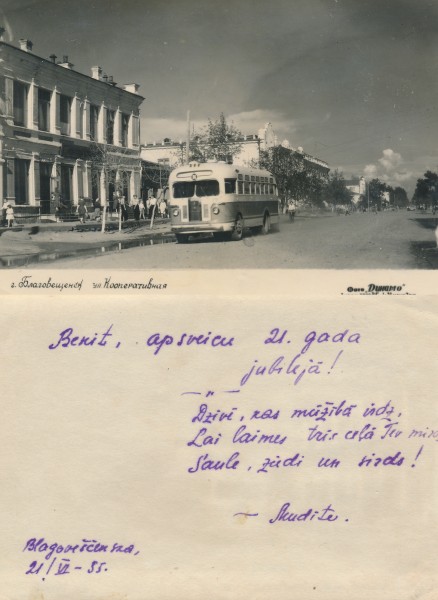 г. Благовещенск ул Кооперативная
Фото "Динамо"
Benit, apsveicu 21. gada
jubilejā!
— „ —
Dzīvē, kas mūžībā
Lai laimes trīs ceļā Tev
Saule, ziedi un sirds!
— Skudite.
Blagoveščenska,
21/VI-55.